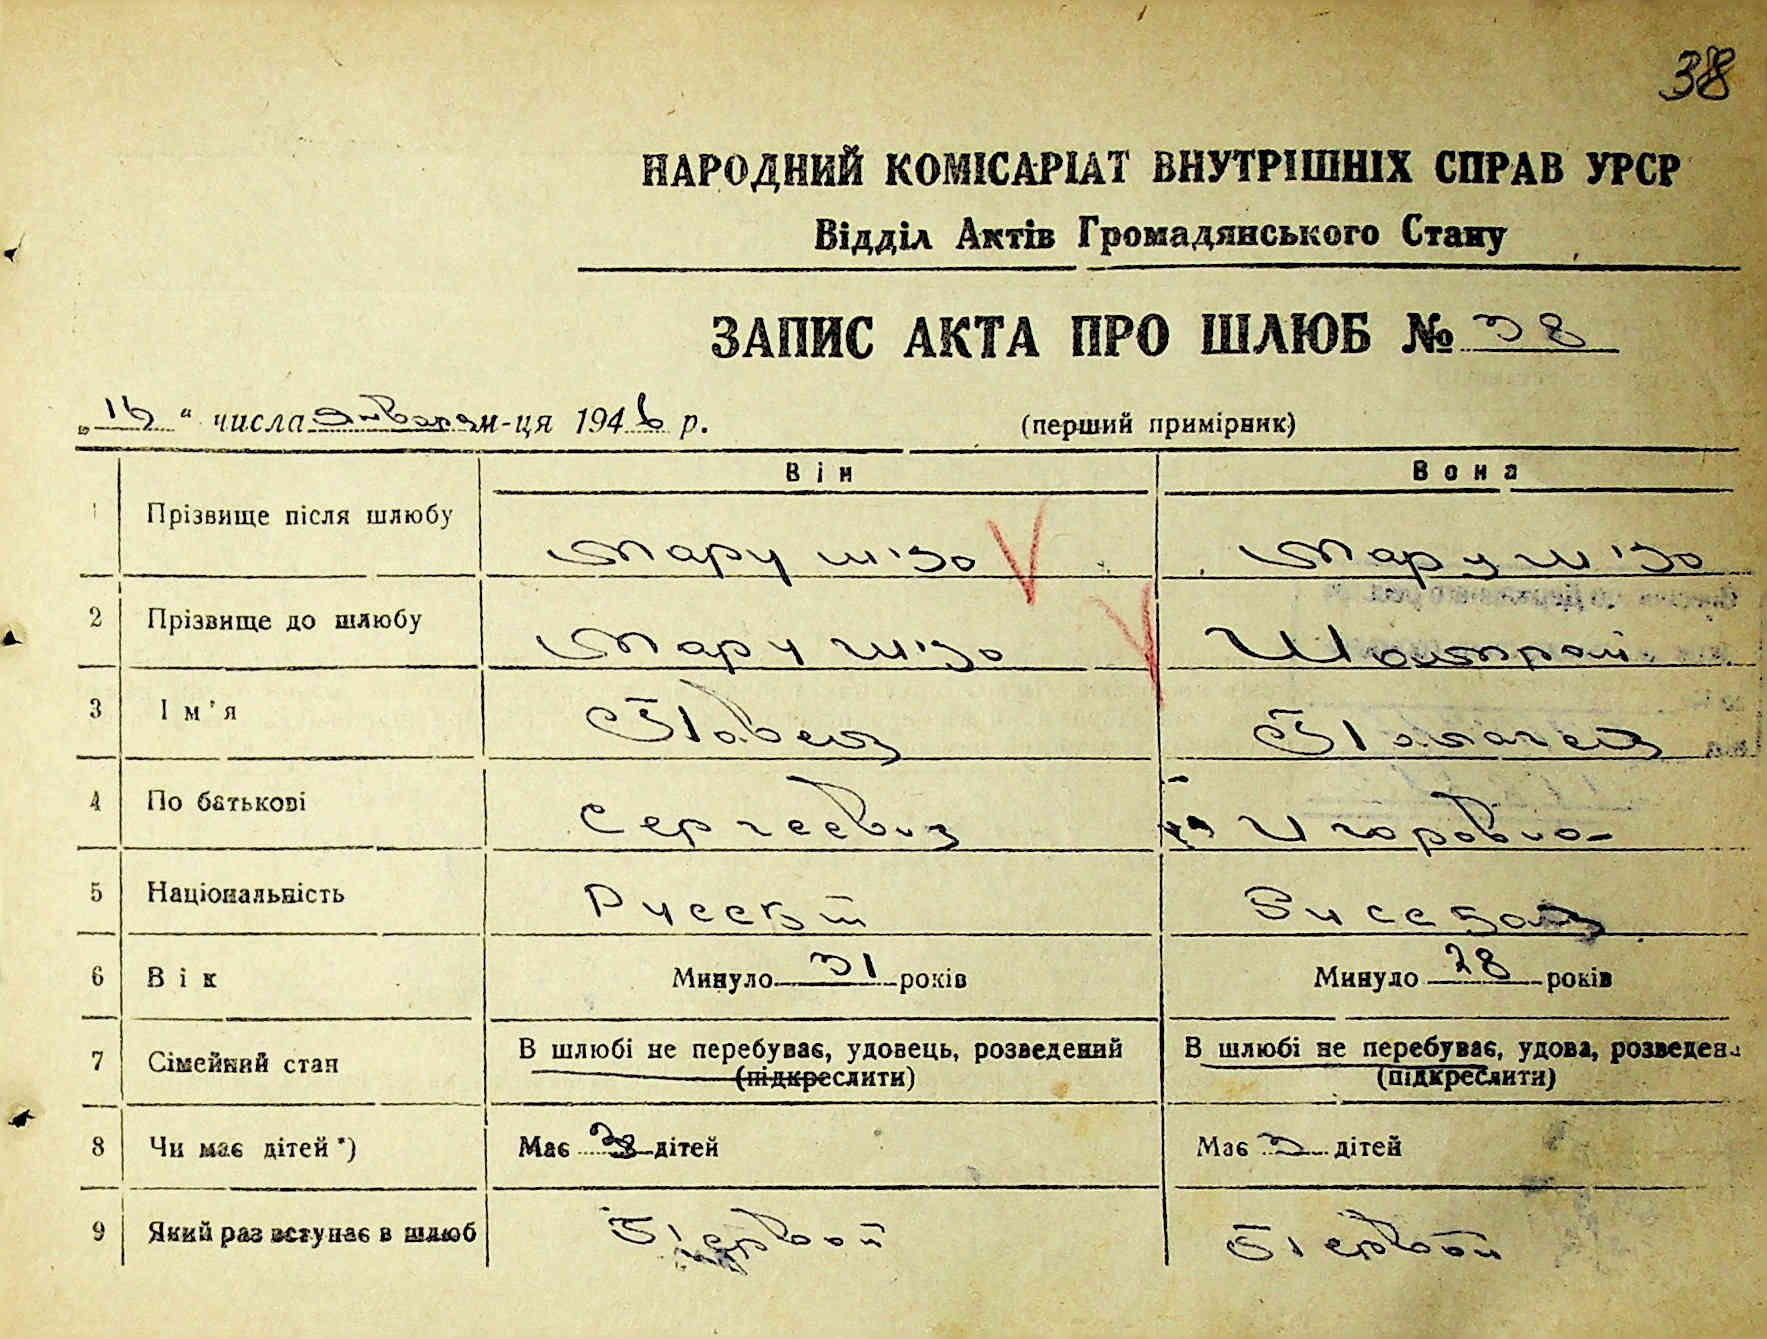 38
НАРОДНИЙ КОМІСАРІАТ ВНУТРІШНІХ СПРАВ УРСР
Відділ Актів Громадянського Стану
ЗАПИС АКТА ПРО ШЛЮБ № 38
„16“ числа января м-ця 1946 р. (перший примірник)
Він Вона
1 Прізвище після шлюбу
2 Прізвище до шлюбу
3 Ім'я Павел Пелагея
4 По батькові Сергеевич Игоровна
5 Національність Русский Русская
6 Вік Минуло 31 років Минуло 28 років
7 Сімейний стан В шлюбі не перебуває, удовець, розведений В шлюбі не перебуває, удова, розведена
(підкреслити) (підкреслити)
8 Чи має дітей *) Має 3 дітей Має 3 дітей
9 Який раз вступає в шлюб Первой Первой